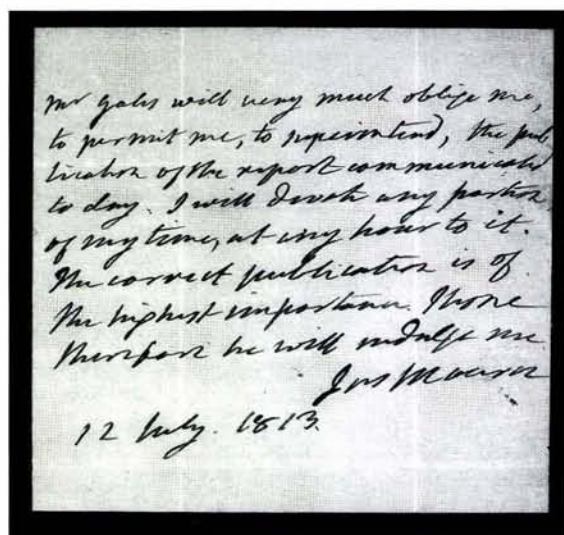 Mr Gales will very much oblige me,
to permit me, to superintend, the pub
lication of the report communicated
to day. I will devote any portion
of my time, at any hour to it.
The correct publication is of
the highest importance. I hope
therefore he will indulge me
Jas Monroe
12 July. 1813.